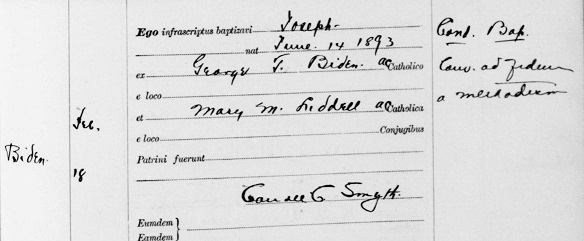 Ego infrascriptus baptizavi Joseph Cond. Bap.
nat June. 14 1893
ex George T. Biden. acCatholico Conv. ad fidem
e loco a methodism
et Mary M. Liddell acCatholica
Feb.
e loco Conjugibus
Biden.
Patrini fuerunt
18
Smyth.
Eumdem }
Eamdem }